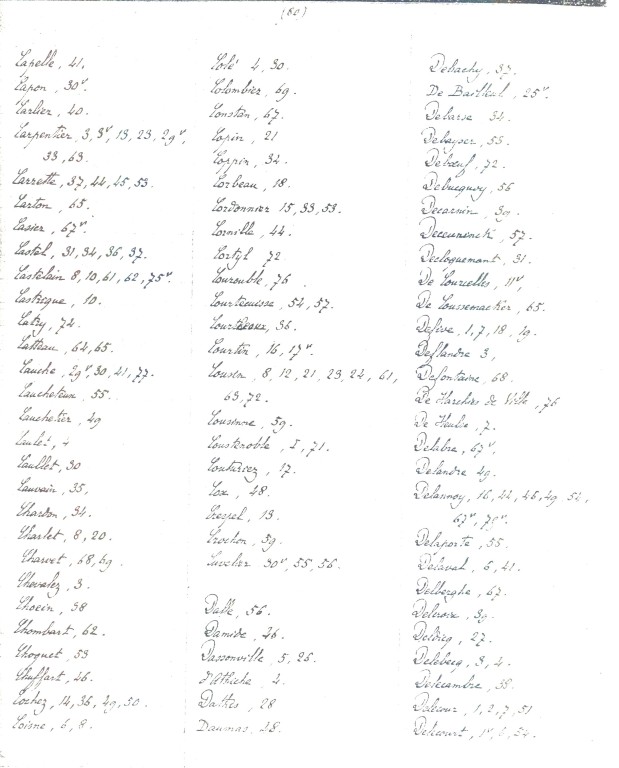 (80)
Capelle, 41.
Capon, 30v.
Carlier, 40.
Carpentier, 3, 3v, 13, 23, 29v,
33, 63.
Carrette, 37, 44, 45, 53.
Carton, 65.
Casier, 67v.
Castel, 31, 34, 36, 37.
Castelain 8, 10, 61, 62, 75v.
Castrique, 10.
Catry, 72.
Catteau, 62, 65.
Cauche, 29v, 30, 41, 77.
Caucheteux, 55.
Cauchetier, 49
Caulet, 4
Caullet, 30
Cauvain, 35,
Chardon, 34.
Charlet, 8, 20.
Charvet, 68, 69.
Chevalez, 3.
Choein, 38
Chombart, 62.
Choquet, 53
Chuffart, 46.
Cochez, 14, 36, 49, 50.
Coisne, 6, 8.
Colé 4, 30.
Colombier, 69.
Constan, 67.
Copin, 21
Coppin, 34.
Corbeau, 18.
Cordonnier 15, 33, 53.
Cornille, 44.
Cortyl 72
Courouble, 76
Courtecuisse, 54, 57.
36.
Courtin, 16, 17v.
Cousin, 8, 12, 21, 23, 24, 61,
63, 72.
59.
Coustenoble, I, 71.
17.
Cox, 48.
Crespel, 13.
Crochon, 39.
Cuvelier 30v, 55, 56.
Dalle, 56.
Damide, 26.
Dassonville, 5, 26.
d'Athiche, 4.
Dathis, 28
Daumas, 28.
Debachy, 37.
De Bailleul, 25v.
Debarse 34.
Debayser, 53.
Debœuf, 72.
Debucquoy, 56
Decarnin, 39.
Deceuninck, 57.
Decloquemant, 31.
De Courcelles, 11v,
De Coussemacker, 65.
Defive, 1, 7, 18, 19.
Deflandre 3,
Defontaine, 68.
De Harchies de Ville, 76
De Heulle, 7.
Delabre, 67v,
Delandre 49.
Delannoy, 16, 42, 46, 49, 52,
67v, 79v.
Delaporte, 55.
Delaval, 6, 41.
Delberghe, 67.
Delcroix, 39.
Deldicq, 27.
Delebecq, 3, 4.
Delecambre, 38.
Delecour, 1, 2, 7, 51
Delecourt, 1v, 2, 54.